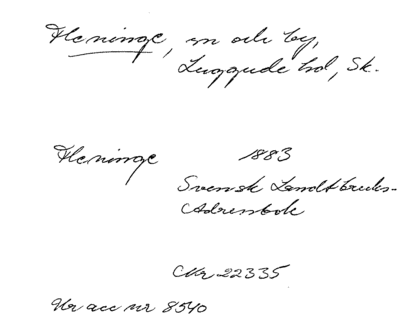 Fleninge, sn och by,
Luggude hd, Sk.
Fleninge 1883
Svensk Landtbruks-
Adressbok
Nr 22335
Ur acc nr 8540